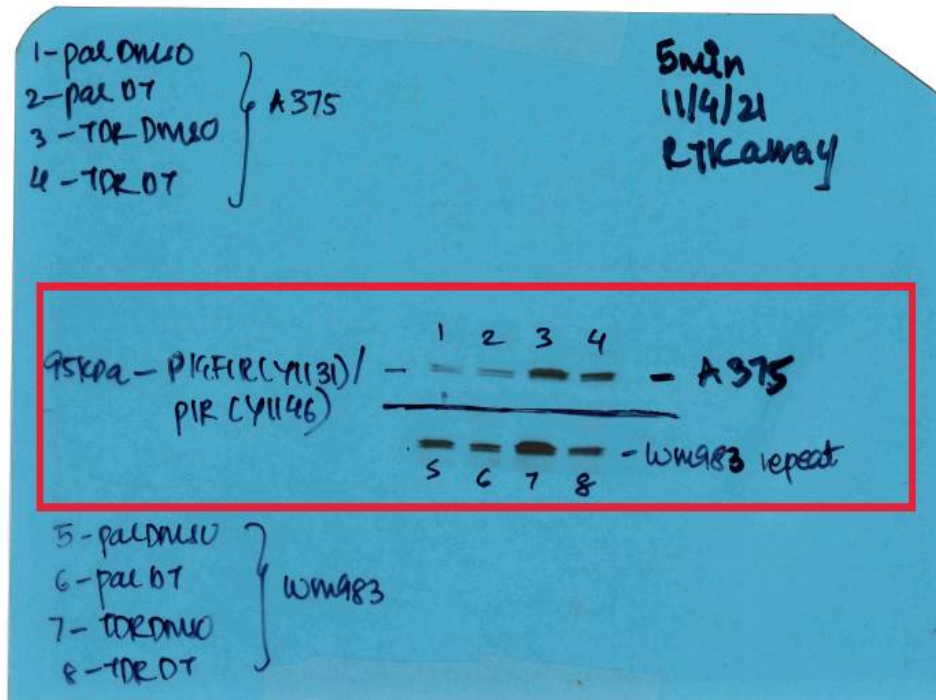 1-parDMSO
2-par DT
3-TDR DMSO
4-TDR DT
A375
5min
11/4/21
RTKarray
1 2 3 4
95kDa - PIGFIR(Y1131)/ - - A375
pIR (Y1146)
- WM983 repeat
5 6 7 8
5-parDMSO
6-par DT
7-TDRDMSO
8-TDR DT
WM983